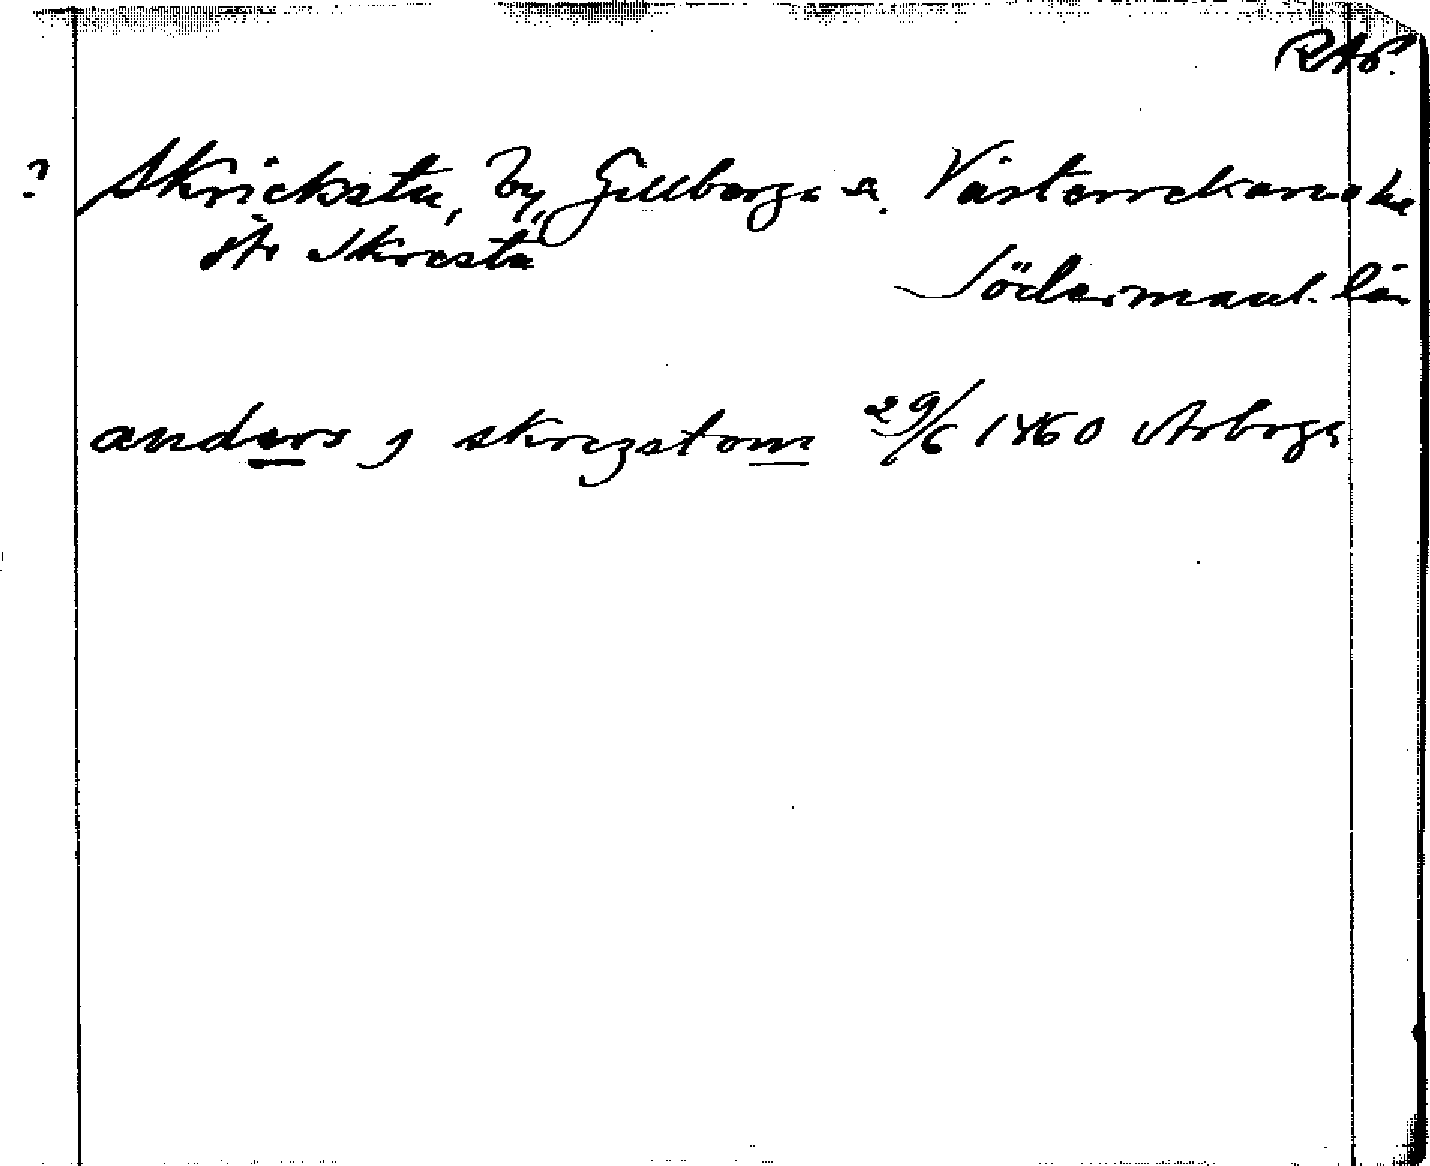 RAp.
? Skricksta, by, Gillberga s. Västerrekarne hd
str Skresta
Södermanl. län
anders j skregstom 29/6 1460 Arboga